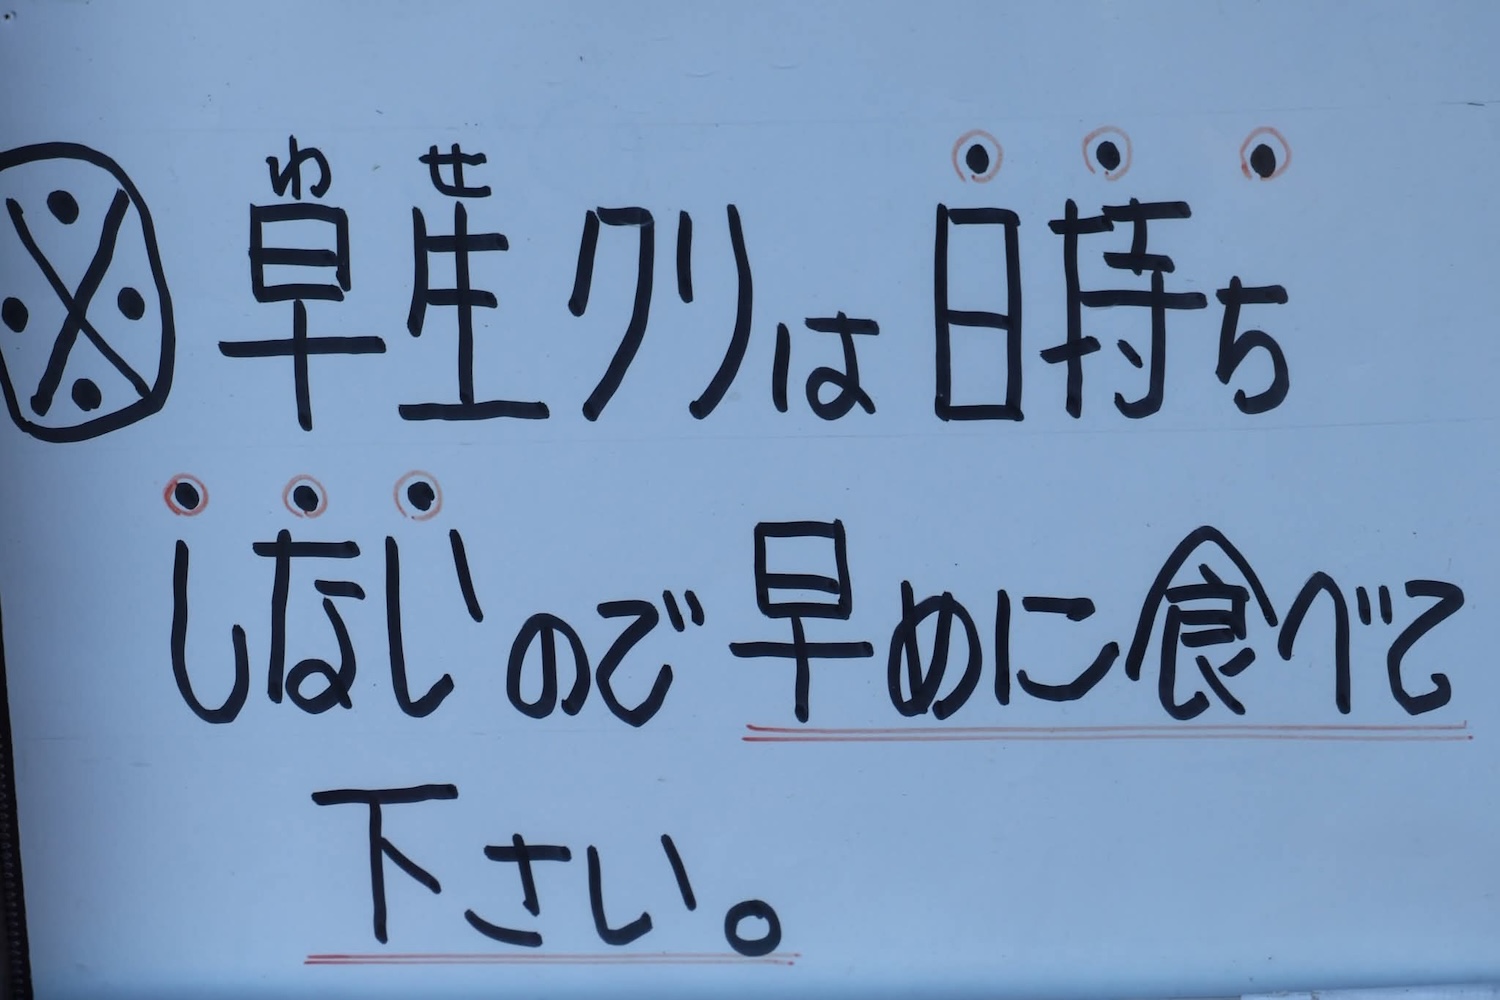 ※早生クリは日持ち
わせ
しないので早めに食べて
下さい。